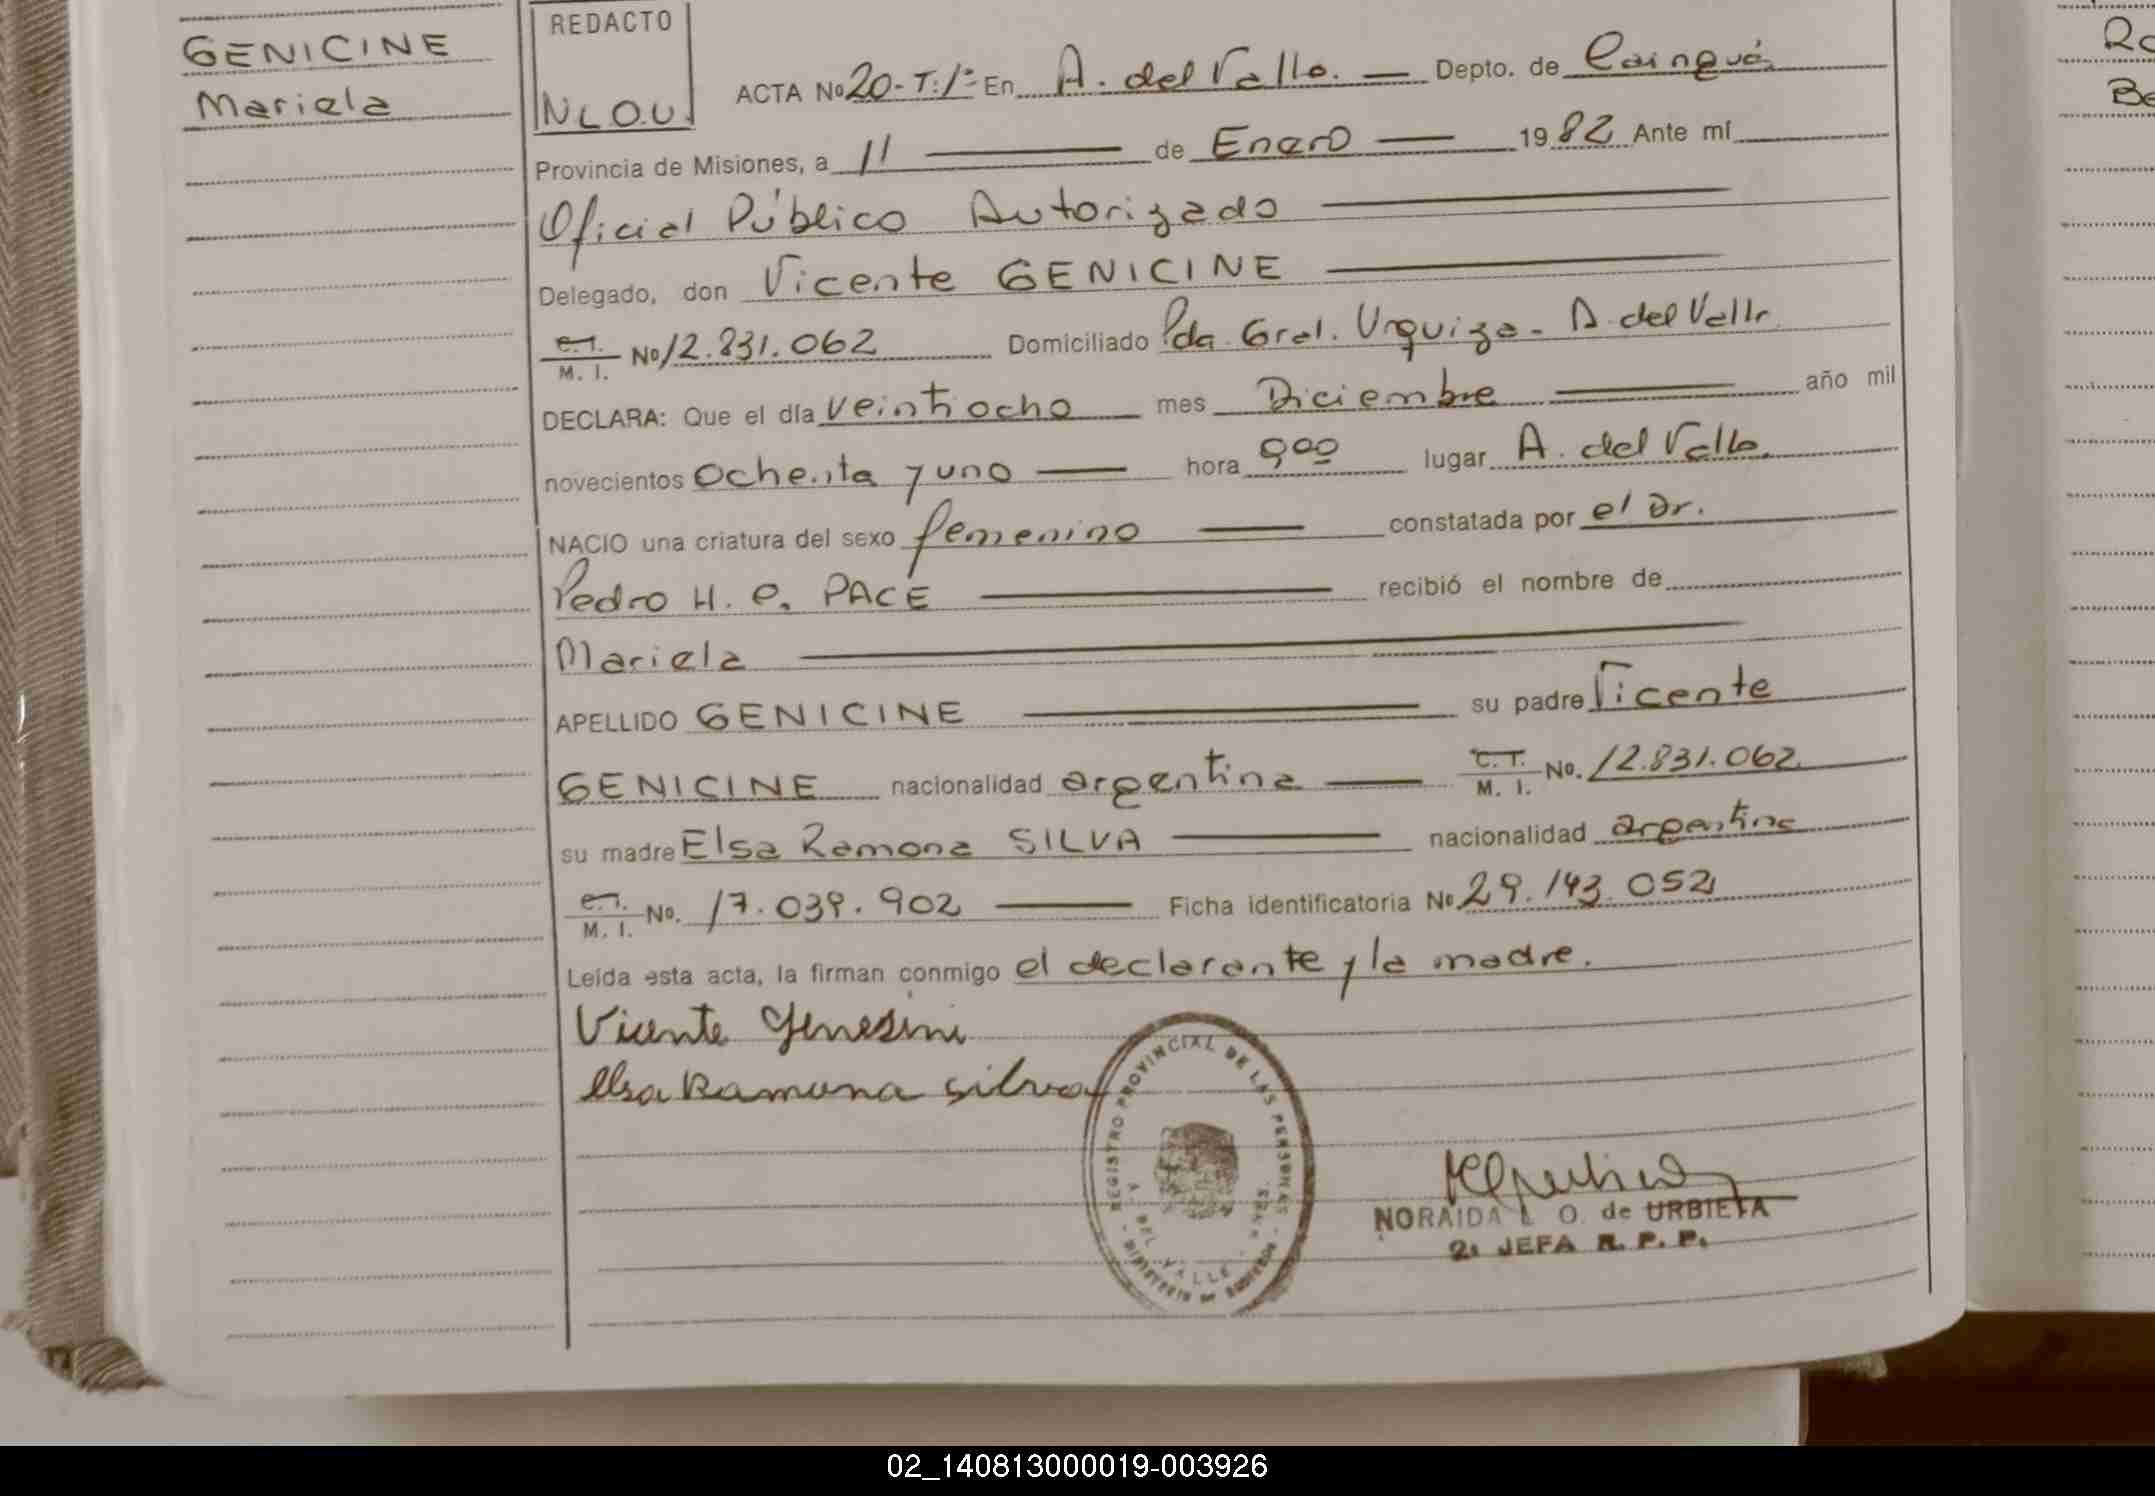 GENICINE
Mariela
REDACTO
N L O.U.
ACTA No 20-T:1º En A. del Valle. Depto. de Cainguá.
Provincia de Misiones, a 11 de Enero 1982 Ante mí
Oficial Público Autorizado
Delegado, don Vicente GENICINE
C.I. M. I. No 12.831.062 Domiciliado Pda. Gral. Urquiza - A. del Valle
DECLARA: Que el día veintiocho mes Diciembre año mil
novecientos ochenta y uno hora 9 00 lugar A. del Valle.
NACIO una criatura del sexo femenino constatada por el Dr.
Pedro H. C. PACE recibió el nombre de
Mariela
APELLIDO GENICINE su padre Vicente
GENICINE nacionalidad argentina C.I. M. I. No. 12.831.062
su madre Elsa Ramona SILVA nacionalidad argentina
C.I. M. I. No. 17.039.902 Ficha identificatoria No 29.143.052
Leída esta acta, la firman conmigo el declarante y la madre.
Vicente Genesini
elsa Ramona silva
REGISTRO PROVINCIAL DE LAS PERSONAS
A. DEL VALLE
NORAIDA L. O. de URBIETA
2ª JEFA R. P. P.
Ro
Be
02_140813000019-003926